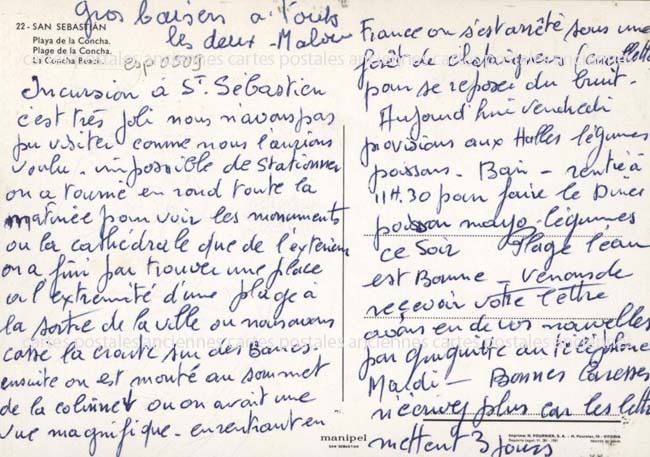 Gros baisers à toute
les deux - 
22 - SAN SEBASTIÁN
Playa de la Concha.
Plage de la Concha.
La Concha Beach.
Esp 0509
Incursion à St Sébastien
c'est très joli nous n'avons pas
pu visiter comme nous l'aurions
voulu - impossible de stationner
on a tourné en rond toute la
matinée pour voir les monuments
ou la cathédrale que de l'extérieur
on a fini par trouver une place
a l'extrémité d'une plage à
la sortie de la ville ou nous avons
cassé la croute sur des Bancs.
ensuite on est monté au sommet
de la colline ou on avait une
vue magnifique - en rentrant en
France on s'est arrêté sous une
forêt de chataigniers
pour se reposer du bruit -
Aujourd'hui vendredi
provisions aux Halles légumes
poissons - Bain - rentré à
11H.30 pour faire le Diner
poisson mayo - légumes
ce Soir Plage l'eau
est Bonne - venons de
reçevoir votre lettre
avons eu de vos nouvelles
par au Téléphone
Mardi - Bonnes Caresses
n'écrivez plus car les lettres
mettent 3 jours
cartes postales anciennes cartes postales anciennes cartes postales anciennes
cartes postales anciennes cartes postales anciennes cartes postales anciennes
manipel
SAN SEBASTIAN